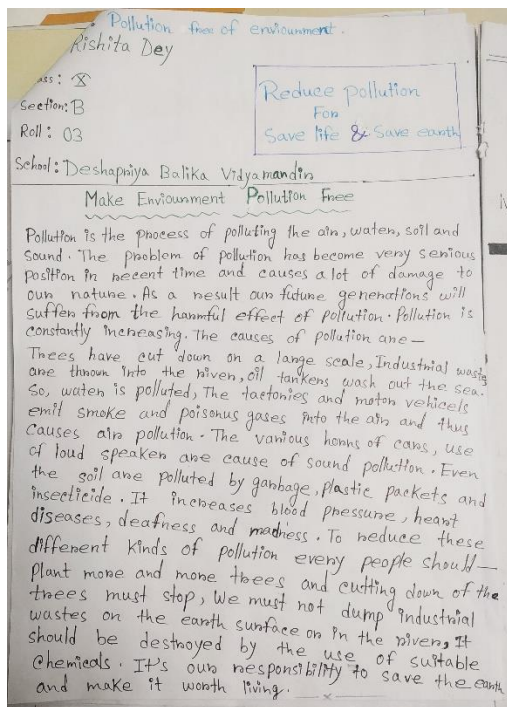 Pollution free of enviounment.
Rishita Dey
ass: X
Section: B
Roll: 03
School: Deshapriya Balika Vidyamandir
Reduce pollution
For
Save life & Save earth
Make Enviounment Pollution Free
Pollution is the process of polluting the air, water, soil and
sound. The problem of pollution has become very serious
position in recent time and causes a lot of damage to
our nature. As a result our future generations will
suffer from the harmful effect of pollution. Pollution is
constantly increasing. The causes of pollution are—
Trees have cut down on a large scale, Industrial wastes
are thrown into the river, oil tankers wash out the sea.
So, water is polluted, The factories and motor vehicels
emit smoke and poisonus gases into the air and thus
causes air pollution. The various horns of cars, use
of loud speaker are cause of sound pollution. Even
the soil are polluted by garbage, plastic packets and
insecticide. It increases blood pressure, heart
diseases, deafness and madness. To reduce these
different kinds of pollution every people should—
plant more and more trees and cutting down of the
trees must stop, We must not dump industrial
wastes on the earth surface or in the river, It
should be destroyed by the use of suitable
Chemicals. It's our responsibility to save the earth
and make it worth living.